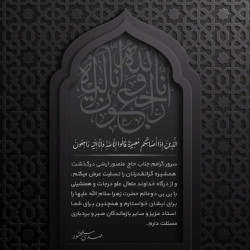 انا لله و انا الیه راجعون
الَّذینَ اِذا اَصابَتهُم مُصیبَةٌ قالوا اِنّا لِلّهِ وَ اِنّا اِلَیهِ راجِعونَ
سرور گرامم جناب حاج منصور ارضی درگذشت
همشیره گرانقدرتان را تسلیت عرض میکنم.
و از درگاه خداوند متعال علو درجات و همنشینی
با بی بی دوعالم حضرت زهرا سلام الله علیها را
برای ایشان خواستارم و همچنین برای شما
استاد عزیز و سایر بازماندگان صبر و بردباری
مسئلت دارم.